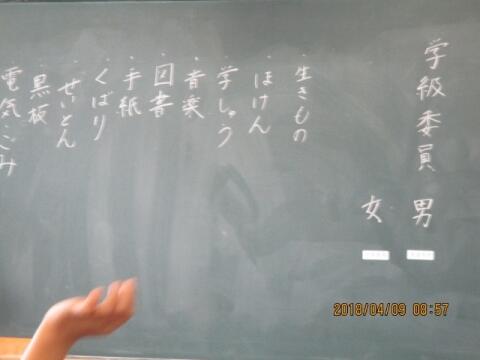 学級委員 男
女
・生きもの
・ほけん
・学しゅう
・音楽
・図書
・手紙
・くばり
・せいとん
・黒板
電気・ごみ
2018/04/09 08:57